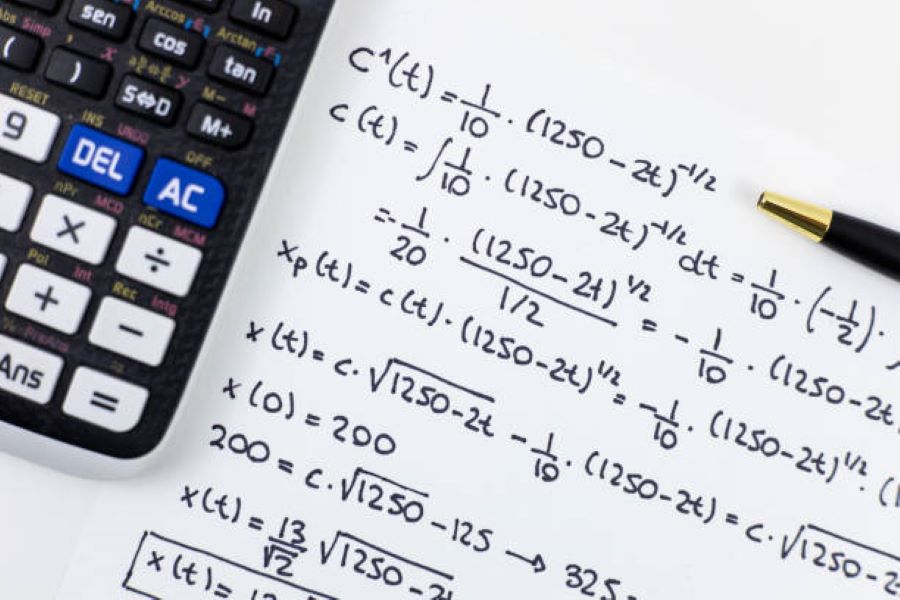 ln
sen
Arccos
Arctan
Abs
Simp
(
cos
tan
)
S⇔D
M-
M
M+
RESET
9
INS
UNDO
DEL
OFF
AC
nPr
MCD
×
nCr
MCM
÷
Pol
Int
+
Rec
Intg
−
Ans
=
C¹(t) = 1/10 · (1250 − 2t)^-1/2
c(t) = ∫ 1/10 · (1250 − 2t)^-1/2 dt = 1/10 · (−1/2) ·
= −1/20 · (1250 − 2t)^1/2 / 1/2 = − 1/10 · (1250 − 2t
xp(t) = c(t) · (1250 − 2t)^1/2 = −1/10 · (1250 − 2t)^1/2 · (1
x(t) = c · √1250 − 2t − 1/10 · (1250 − 2t) = c · √1250 − 2
x(0) = 200
200 = c · √1250 − 125 → 325
x(t) = 13/√2 √1250 − 2t
x(t) =